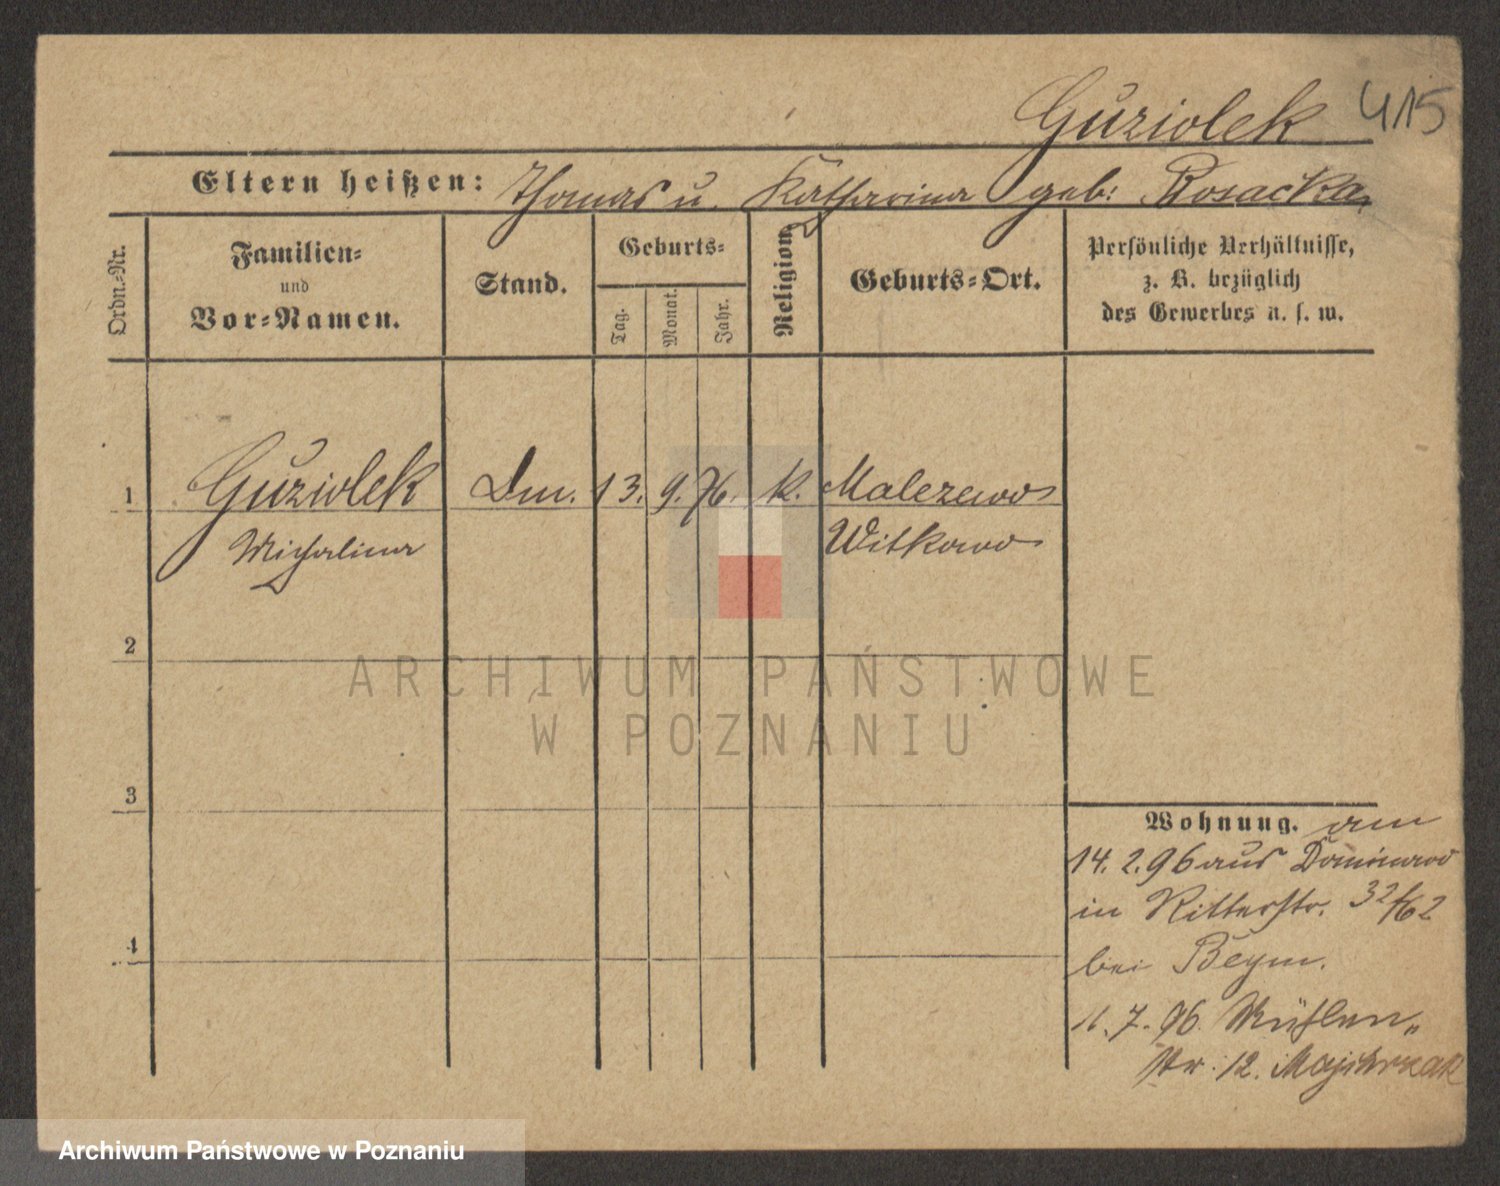 Guziolek 415
Eltern heißen: Thomas u. Katharina geb: Kosacka
Ordn.-Nr.
Familien-
und
Vor-Namen.
Stand.
Geburts-
Tag.
Monat.
Jahr.
Religion.
Geburts-Ort.
Persönliche Verhältnisse,
z. B. bezüglich
des Gewerbes u. s. w.
1 Guziolek Dm. 13. 9. 76. k. Malczewo
Michalina Witkowo
2
ARCHIWUM PAŃSTWOWE
W POZNANIU
3
Wohnung. am
14. 2. 96 aus Dominowo
in Ritterstr.
4
bei Beym.
1. 7. 96. Mühlen„
str. 12. Majchrzak
Archiwum Państwowe w Poznaniu